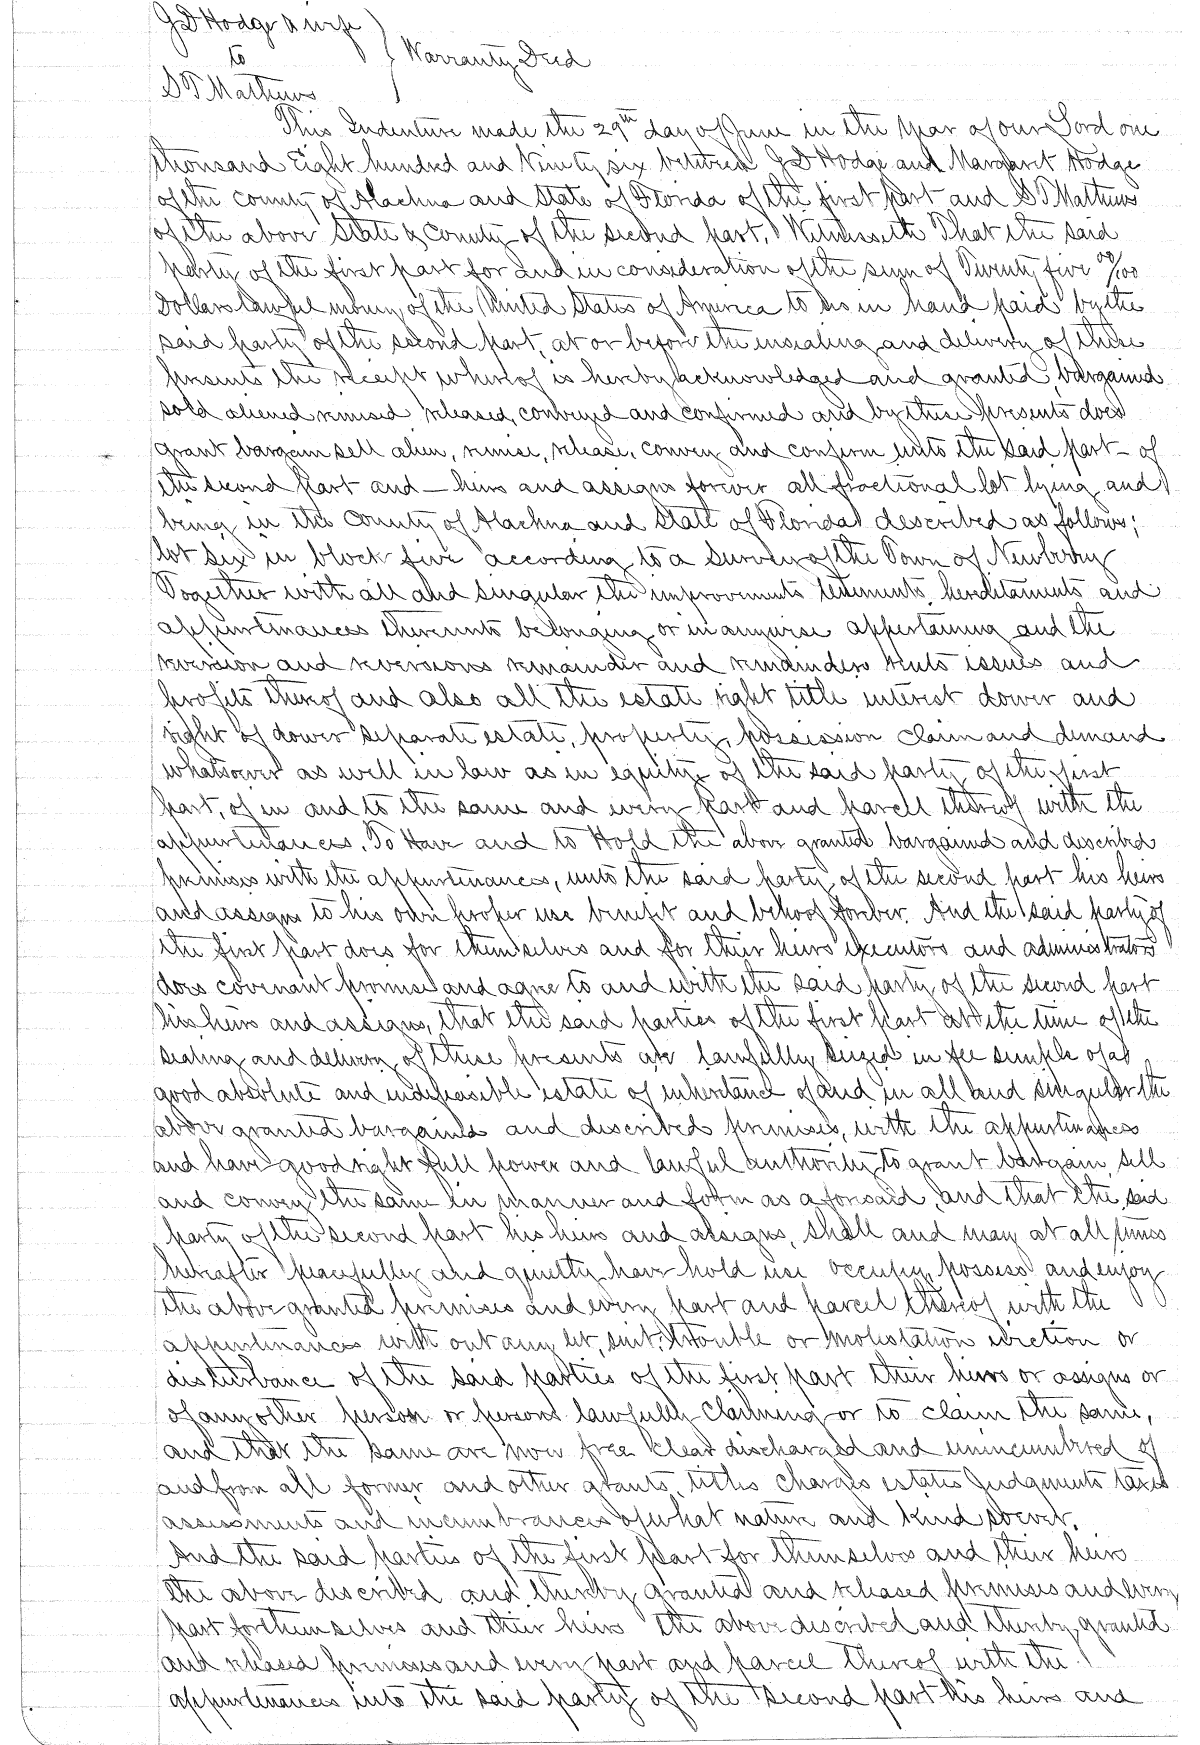 J D Hodge & wife
to
S T Mathews
Warranty Deed
This Indenture made the 29th day of June in the Year of our Lord one
thousand Eight hundred and Ninety six between J D Hodge and Margaret Hodge
of the county of Alachua and State of Florida of the first part and S T Mathews
of the above State & County of the second part, Witnesseth That the said
party of the first part for and in consideration of the sum of Twenty five 00/100
Dollars lawful money of the United States of America to us in hand paid by the
said party of the second part, at or before the ensealing and delivery of these
presents the receipt whereof is hereby acknowledged and granted, bargained
sold aliened remised released, conveyed and confirmed and by these presents does
grant bargain sell alien, remise, release, convey and confirm unto the said part– of
the second part and — heirs and assigns forever all fractional lot lying and
being in the County of Alachua and State of Florida described as follows;
lot six in block five according to a Survey of the Town of Newberry
Together with all and singular the improvements tenements hereditaments and
appurtenances thereunto belonging or in anywise appertaining and the
reversion and reversions remainder and remainders rents issues and
profits thereof and also all the estate right title interest dower and
right of dower separate estate, property, possession claim and demand
whatsoever as well in law as in equity of the said party of the first
part, of in and to the same and every part and parcell thereof with the
appurtenances. To Have and to Hold the above granted bargained and described
premises with the appurtenances, unto the said party of the second part his heirs
and assigns to his own proper use benefit and behoof forever. And the said party of
the first part does for themselves and for their heirs executors and administrators
does covenant promise and agree to and with the said party of the second part
his heirs and assigns, that the said parties of the first part at the time of the
sealing and delivery of these presents are lawfully seized in fee simple of a
good absolute and indefeasible estate of inheritance of and in all and singular the
above granted bargained and described premises, with the appurtenances
and have good right full power and lawful authority to grant bargain, sell
and convey the same in manner and form as aforesaid, and that the said
party of the second part his heirs and assigns, shall and may at all times
hereafter peacefully and quietly have hold use occupy, possess and enjoy
the above granted premises and every part and parcel thereof with the
appurtenances with out any let, suit, trouble or molestation eviction or
disturbance of the said parties of the first part their heirs or assigns or
of any other person or persons lawfully claiming or to claim the same,
and that the same are now free clear discharged and unincumbered of
and from all former and other grants, titles charges estates Judgments taxes
assessments and incumbrances of what nature and kind soever.
And the said parties of the first part for themselves and their heirs
the above described and thereby granted and released premises and every
part for themselves and their heirs the above described and thereby granted
and released premises and every part and parcel thereof with the
appurtenances into the said party of the second part his heirs and